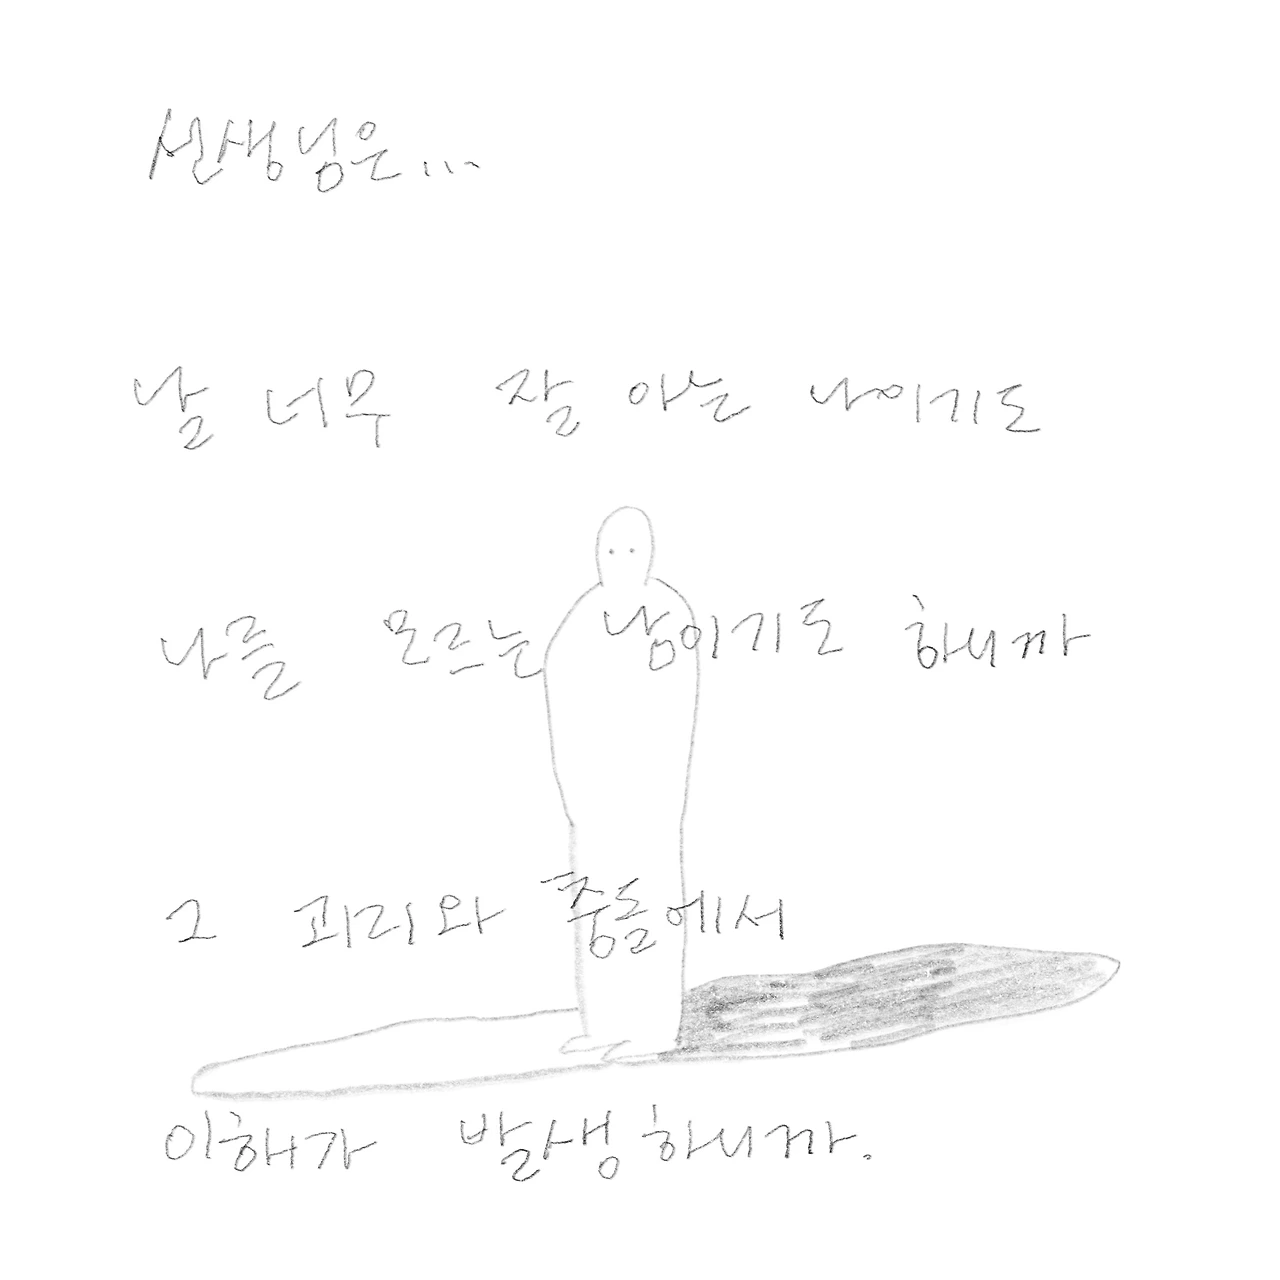 선생님은...
날 너무 잘 아는 나이기도
나를 모르는 남이기도 하니까
그 괴리와 충돌에서
이해가 발생하니까.